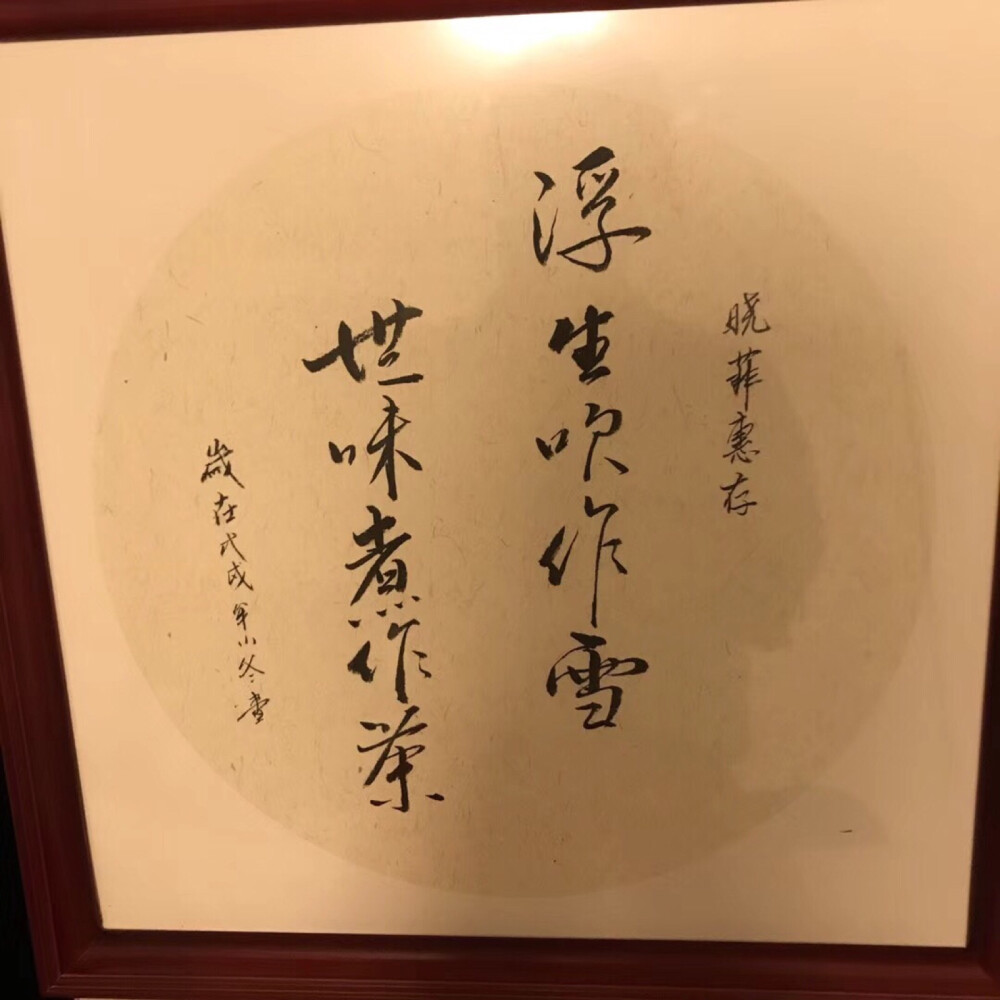 晓菲惠存
浮生吹作雪
世味煮作茶
歲在戊戌年小冬書